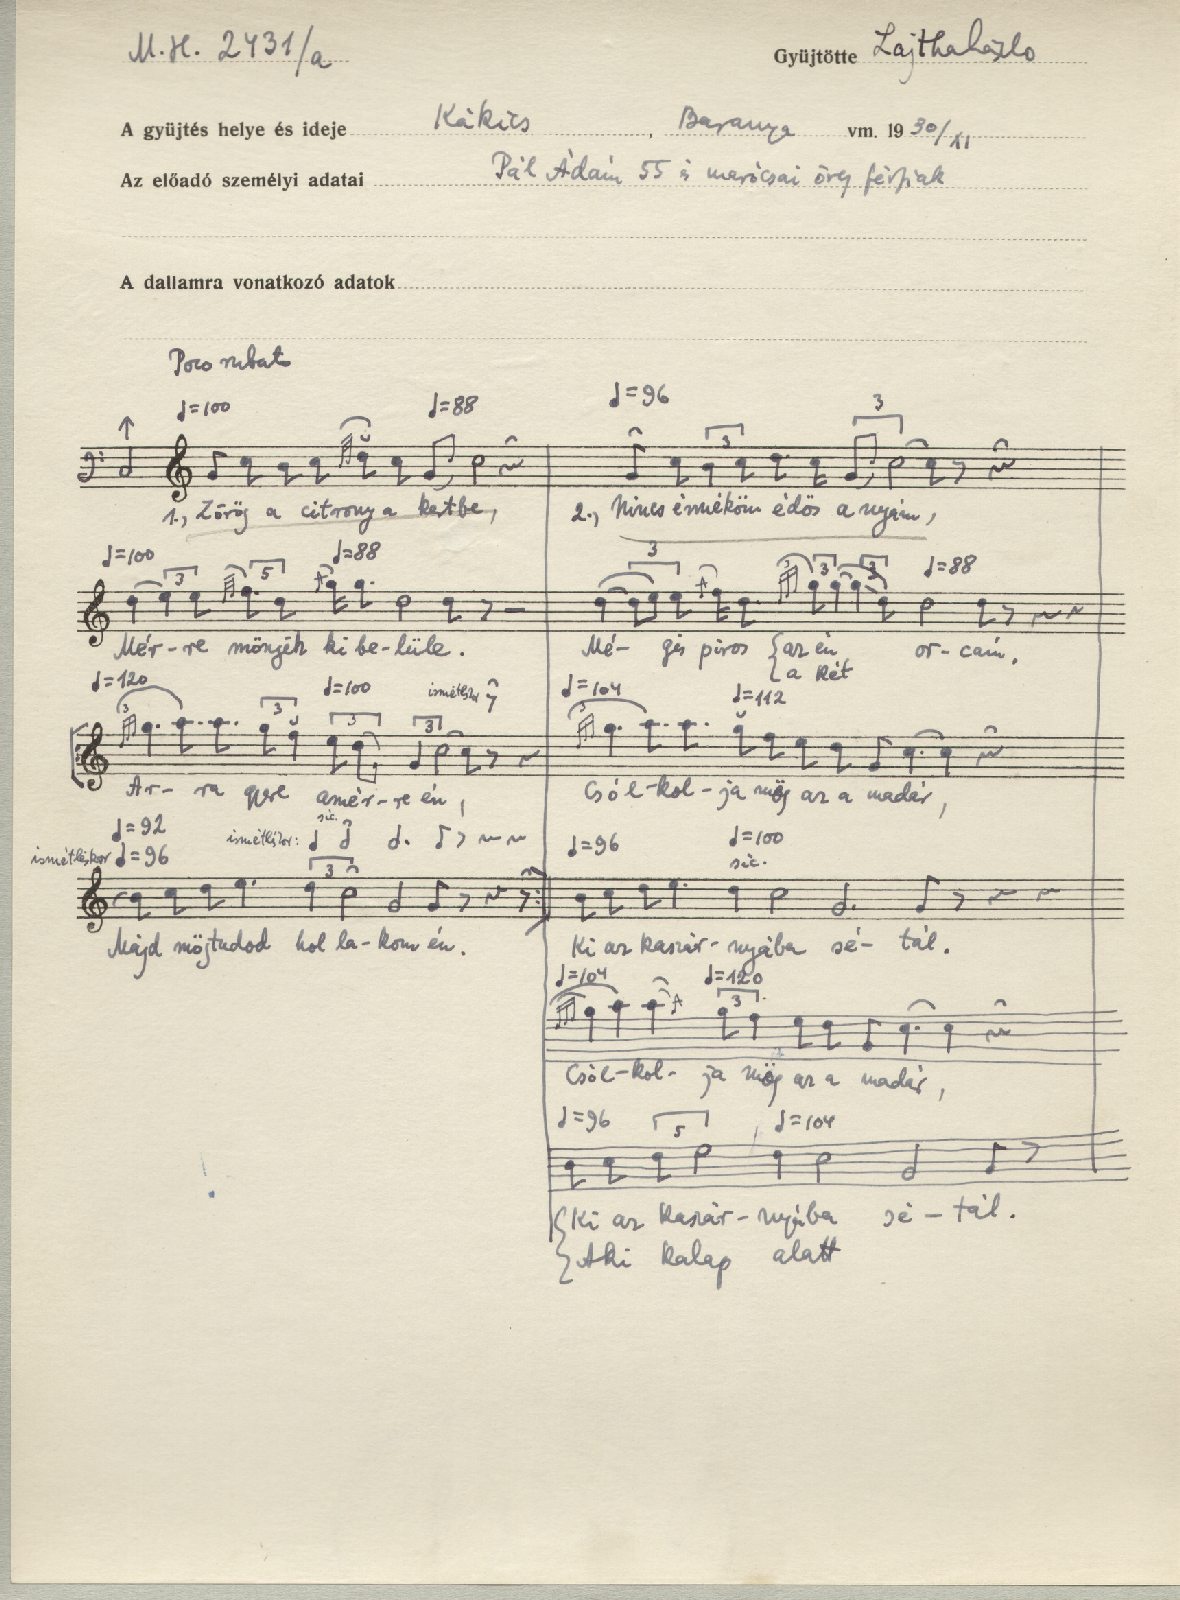 M.H. 2431/a
Gyüjtötte Lajtha László
A gyüjtés helye és ideje Kákics, Baranya vm. 1930/XI
Az előadó személyi adatai Pál Ádám 55 és marócsai öreg férfiak
A dallamra vonatkozó adatok
Poco rubat
=100 =88 =96 3
3
1., Zörög a citrony a kertbe, 2., Nincs énnéköm édös anyám,
=100 3 5 =88 3 3 3 3 =88
Mér-re mönjek ki be-lüle. Mé- gis piros {az én or-cám.
{a két
=120 =100 ismétléskor =104 =112
3 3 3 3 3
Ar- ra gyere amér-re én, Csól-kol-ja mög az a madár,
sic.
=92 ismétléskor: =96 =100
ismétléskor =96 sic.
3
Májd mögtudod hol la-kom én. Ki az kaszár-nyába sé- tál.
=104 =120
3
Csól-kol- ja mög az a madár,
=96 5 =104
{Ki az kaszár-nyába sé-tál.
{Aki kalap alatt